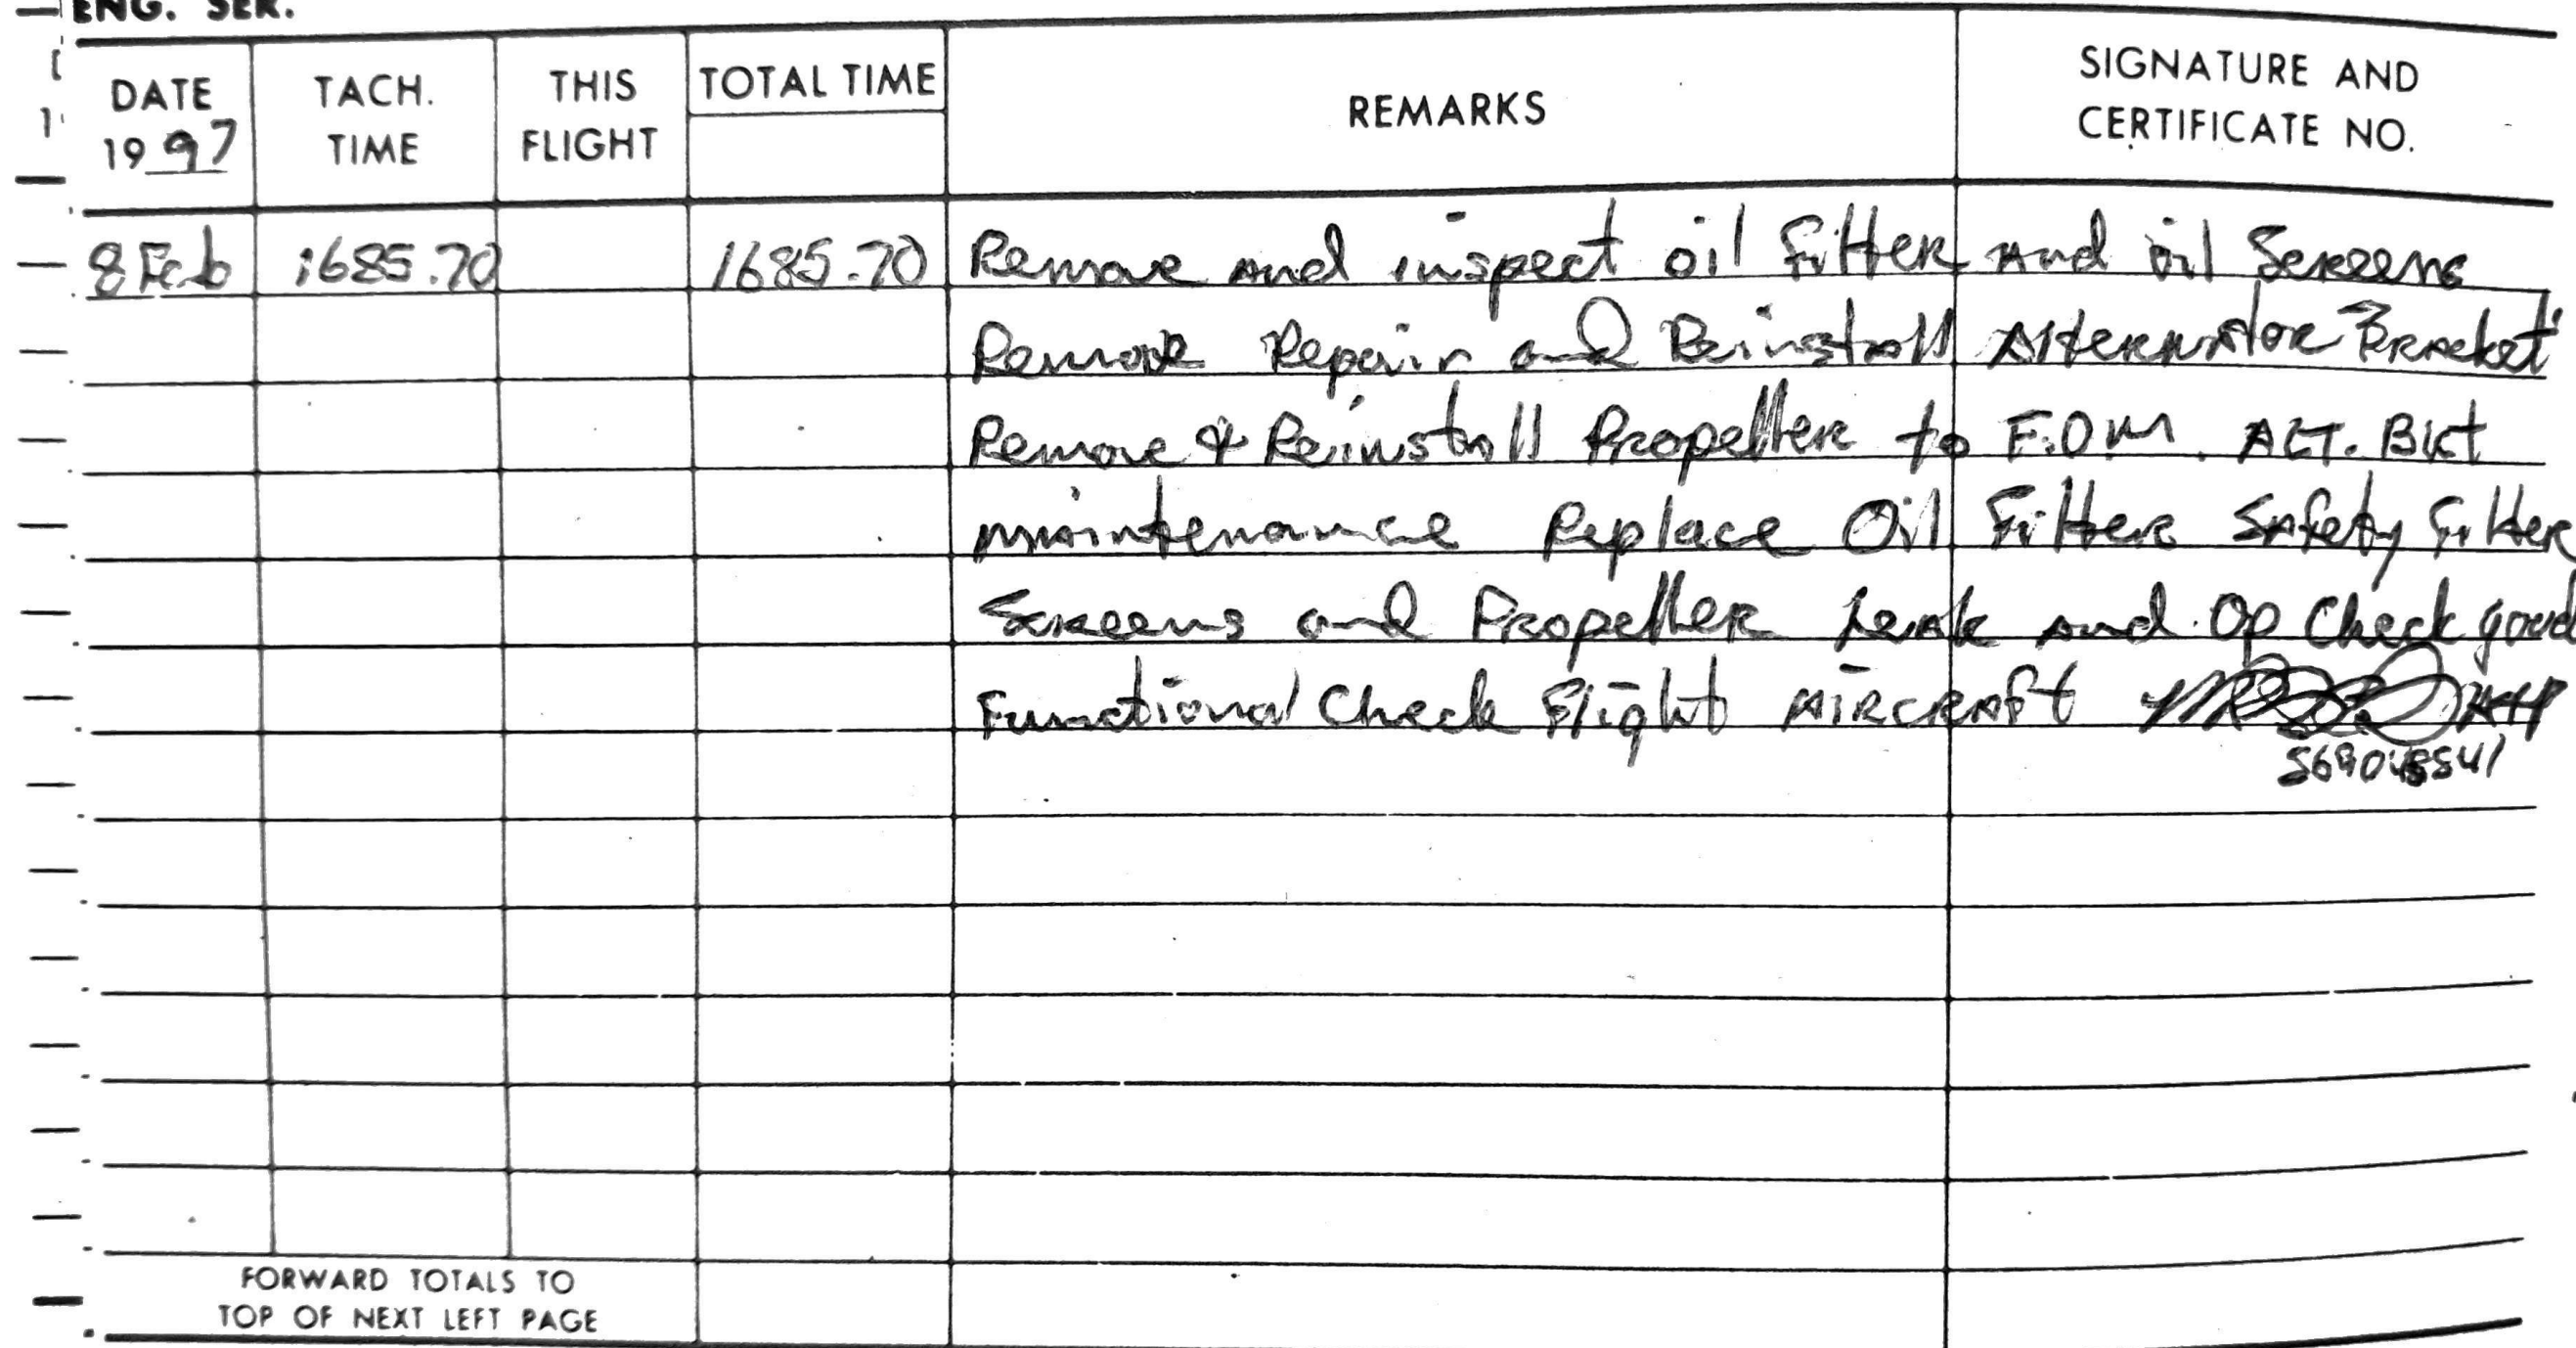 ENG. SER.
DATE
1997
TACH.
TIME
THIS
FLIGHT
TOTAL TIME
REMARKS
SIGNATURE AND
CERTIFICATE NO.
8 Feb 1685.70 1685.70 Remove and inspect oil filter and oil Screens
Remove Repair and Reinstall Alternator Bracket
Remove & Reinstall Propeller to F.O.M. ALT. Bkt
maintenance Replace Oil Filter Safety Filter
Screens and Propeller Leak and Op Check good
Functional Check Flight Aircraft
FORWARD TOTALS TO
TOP OF NEXT LEFT PAGE